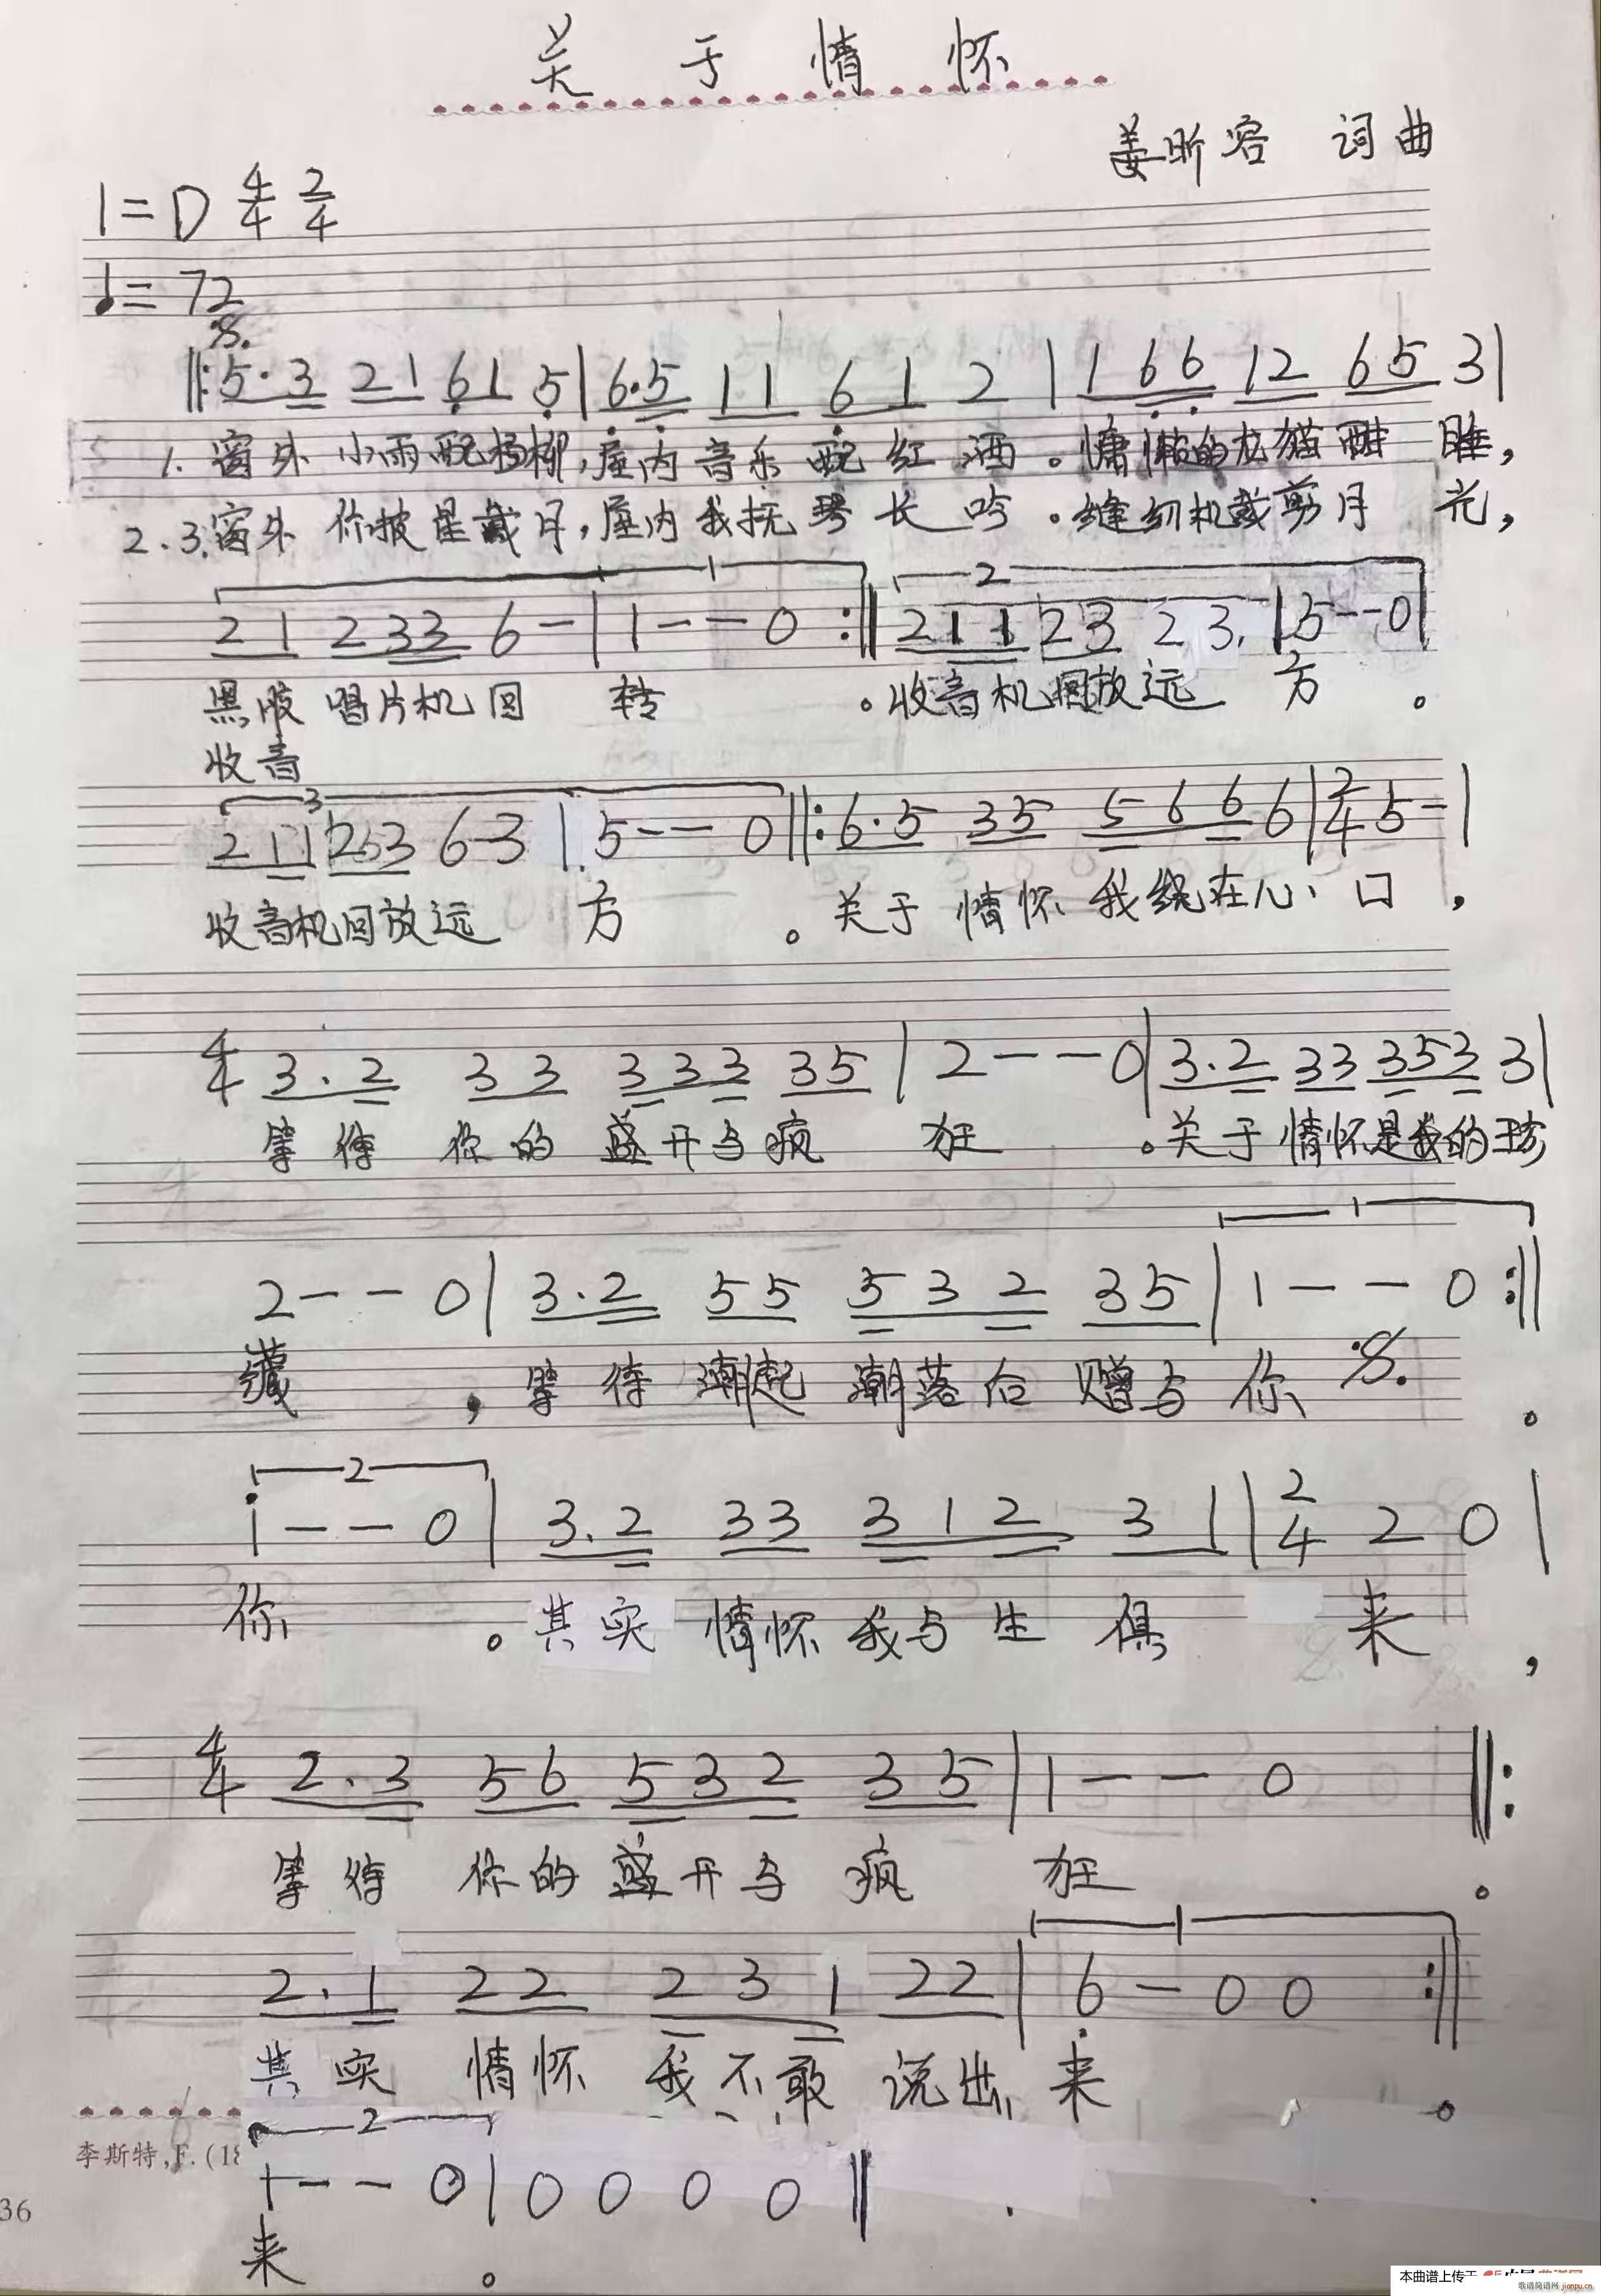 关于情怀
姜昕容 词曲
1=D 4/4 2/4
♩=72
𝄋
‖:5·3 21 61 5|6·5 11 61 2|1 66 12 65 3|
1. 窗外小雨配杨柳,屋内音乐配红酒。慵懒的龙猫酣睡,
2.3.窗外你披星戴月,屋内我抚琴长吟。缝纫机裁剪月光,
1 2
21 233 6-|1--0:‖211 23 23.|5--0|
黑胶唱片机回转。收音机回放远方。
收音
3
211 253 6-3|5--0‖:6·5 35 566 6|2/4 5-|
收音机回放远方。关于情怀我绕在心口,
4/4 3·2 33 333 35|2--0|3·2 33 353 3|
等待你的盛开与疯狂。关于情怀是我的珍
1
2--0|3·2 55 532 35|1--0:‖
藏,等待潮起潮落后赠与你 𝄋。
2
i--0|3·2 33 312 31|2/4 2 0|
你。其实情怀我与生俱来,
4/4 2·3 56 532 35|1--0‖:
等待你的盛开与疯狂。
1
2·1 22 231 22|6-00:‖
其实情怀我不敢说出来。
2
李斯特,F.(18
1--0|0000‖
36
来。
本曲谱上传于
歌谱简谱网 jianpu.cn